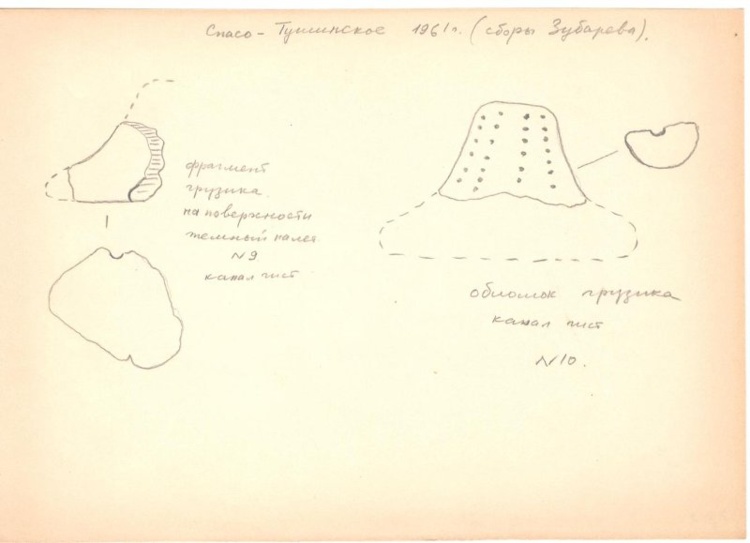 Спасо-Тушинское 1961г. (сборы Зубарева).
фрагмент
грузика.
на поверхности
темный налет
№9
канал чист
обломок грузика
канал чист
№10.